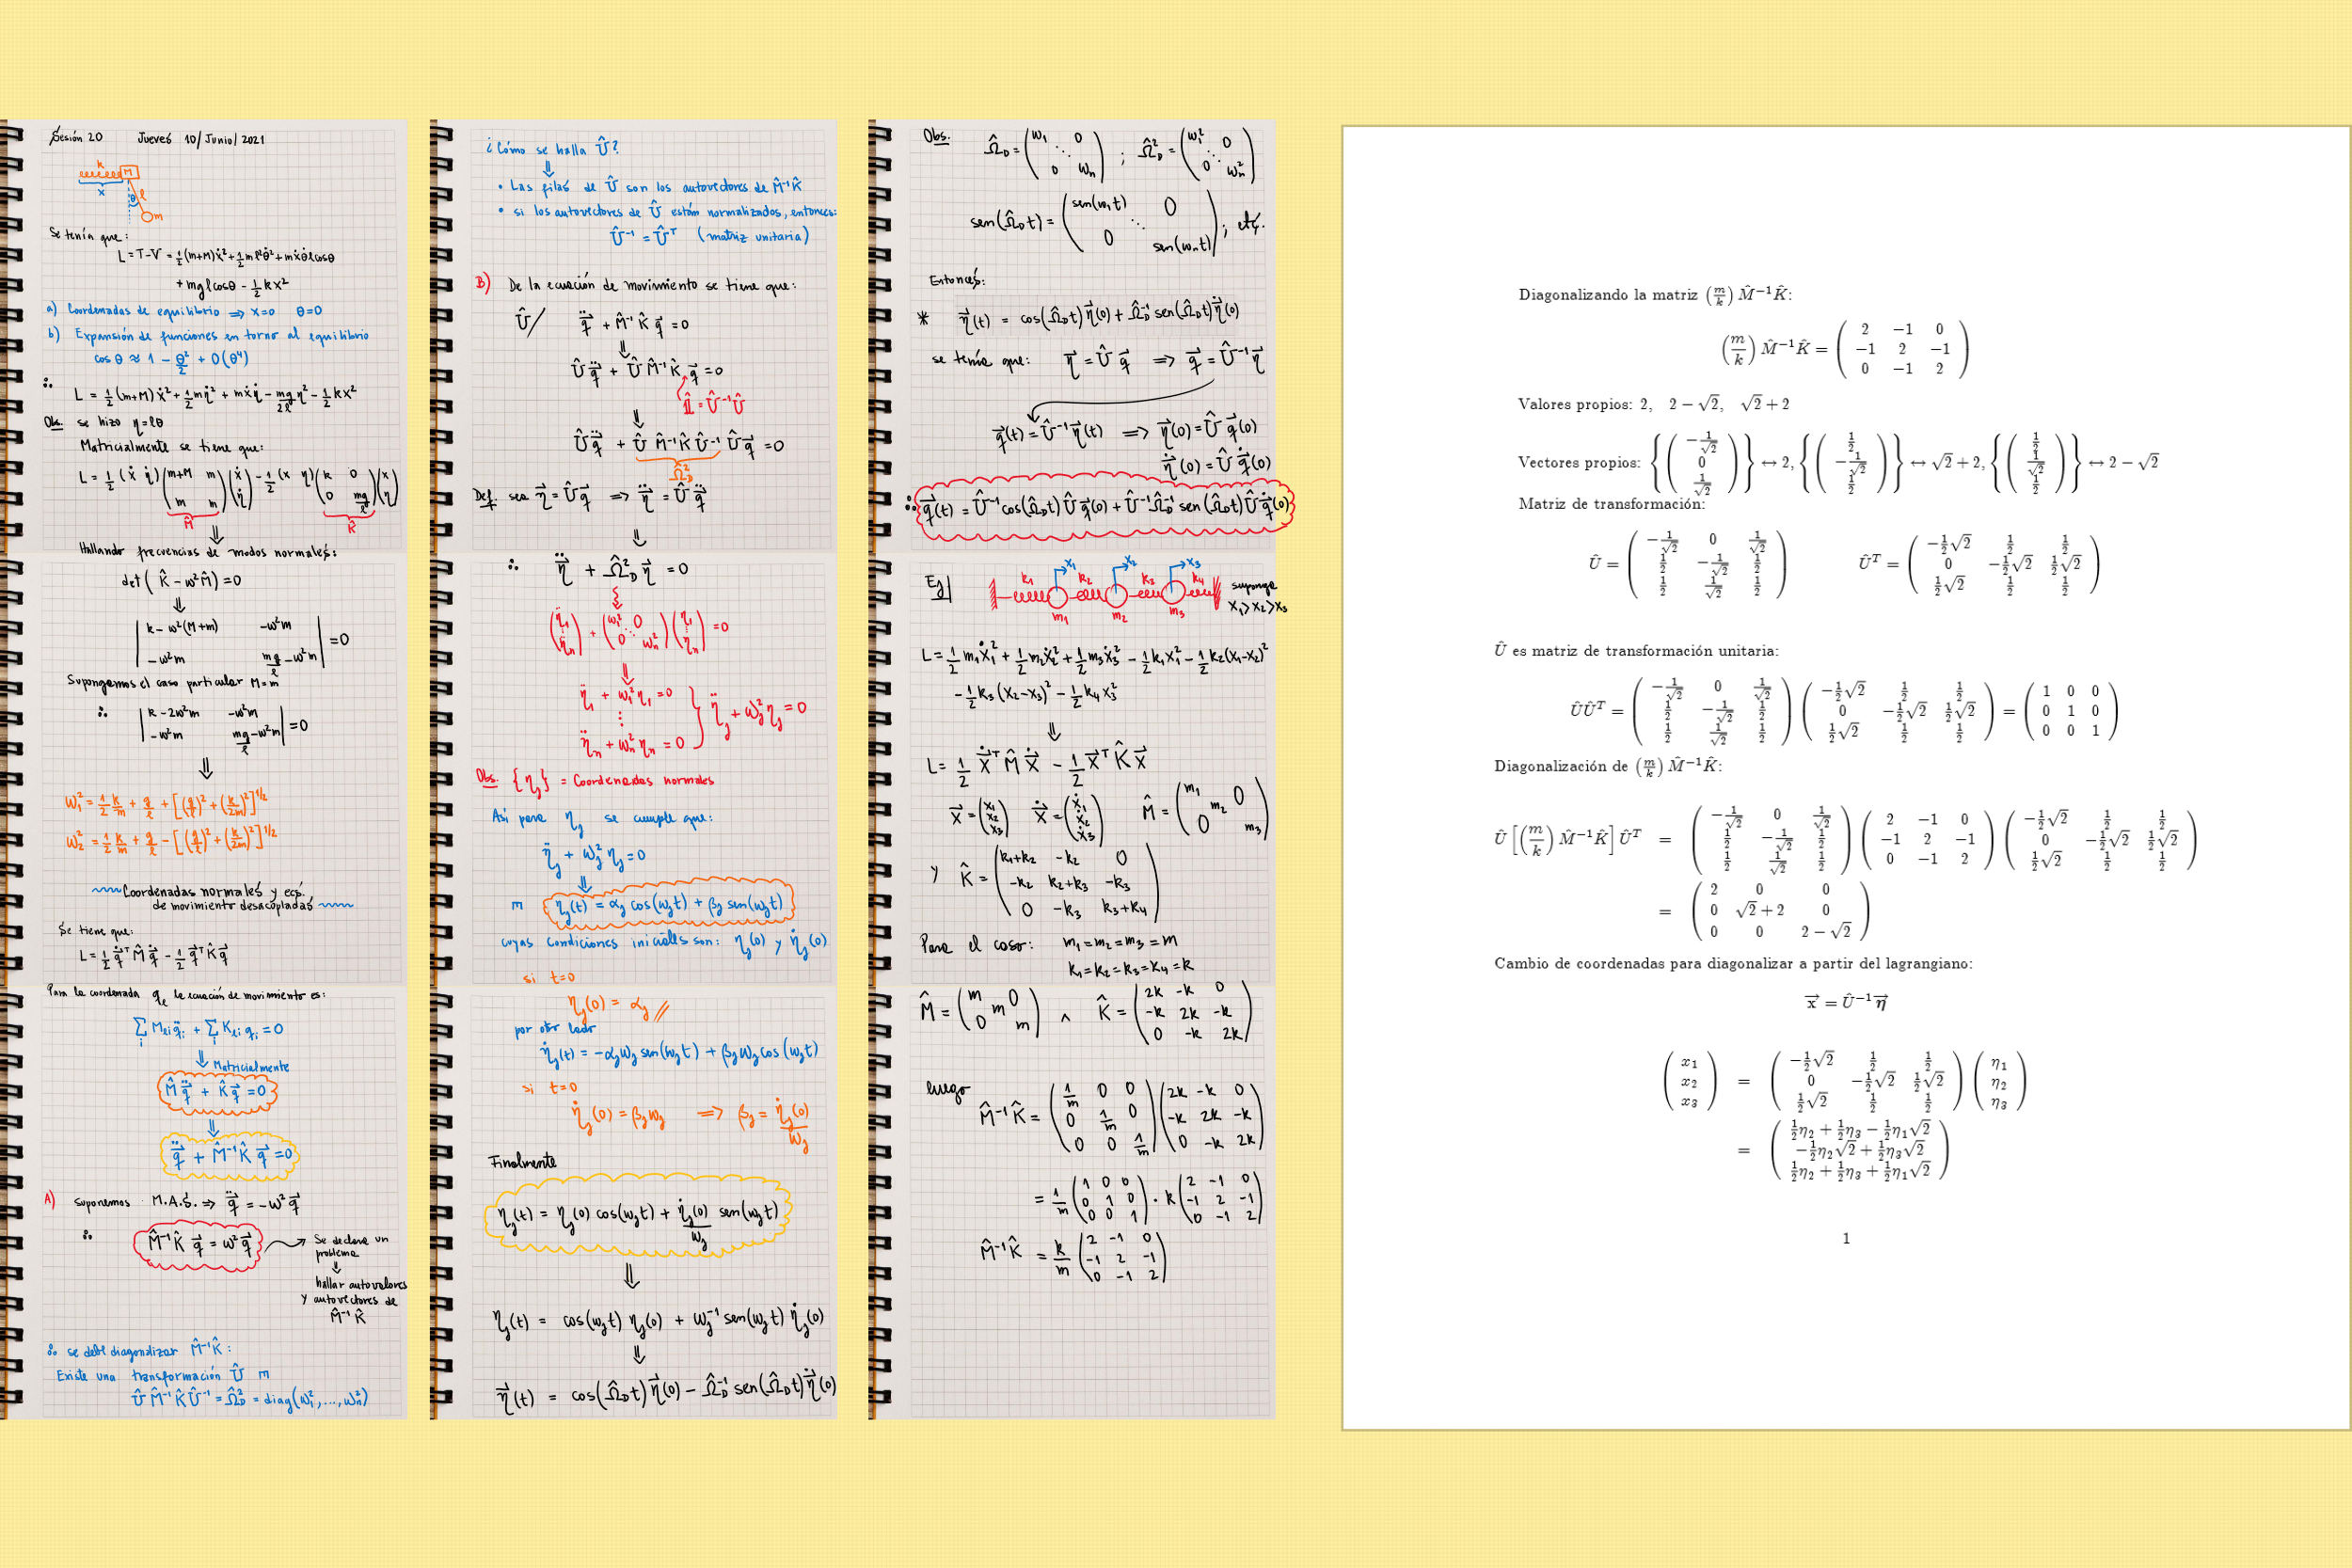 Sesión 20 Jueves 10/Junio/2021
k M
x θ l
m
Se tenía que:
L = T-V = 1/2 (m+M)ẋ² + 1/2 m l²θ̇² + mẋθ̇ l cosθ
+ mg l cosθ - 1/2 k x²
a) Coordenadas de equilibrio ⇒ x=0 θ=0
b) Expansión de funciones en torno al equilibrio
cos θ ≈ 1 - θ²/2 + O(θ⁴)
∴ L = 1/2 (m+M) ẋ² + 1/2 m η̇² + m ẋ η̇ - mg/2l η² - 1/2 k x²
Obs. se hizo η = lθ
Matricialmente se tiene que:
L = 1/2 (ẋ η̇) (m+M m; m m) (ẋ; η̇) - 1/2 (x η) (k 0; 0 mg/l) (x; η)
M̂ K̂
⇓
Hallando frecuencias de modos normales:
det( K̂ - ω² M̂ ) = 0
⇓
| k - ω²(M+m) -ω²m; -ω²m mg/l - ω²m | = 0
Supongamos el caso particular M=m
∴ | k - 2ω²m -ω²m; -ω²m mg/l - ω²m | = 0
⇓
ω₁² = 1/2 k/m + g/l + [(g/l)² + (k/2m)²]^1/2
ω₂² = 1/2 k/m + g/l - [(g/l)² + (k/2m)²]^1/2
~~~ Coordenadas normales y ecs.
de movimiento desacopladas ~~~
Se tiene que:
L = 1/2 q̇⃗ᵀ M̂ q̇⃗ - 1/2 q⃗ᵀ K̂ q⃗
Para la coordenada qₗ la ecuación de movimiento es:
∑ᵢ Mₗᵢ q̈ᵢ + ∑ᵢ Kₗᵢ qᵢ = 0
⇓ Matricialmente
M̂ q̈⃗ + K̂ q⃗ = 0
⇓
q̈⃗ + M̂⁻¹ K̂ q⃗ = 0
A) Suponemos M.A.S. ⇒ q̈⃗ = -ω² q⃗
∴ M̂⁻¹ K̂ q⃗ = ω² q⃗ → Se declara un
problema
⇓
hallar autovalores
y autovectores de
M̂⁻¹ K̂
∴ se debe diagonalizar M̂⁻¹K̂:
Existe una transformación Û
Û M̂⁻¹ K̂ Û⁻¹ = Ω̂²_D = diag(ω₁², ..., ωₙ²)
¿Cómo se halla Û?
⇓
• Las filas de Û son los autovectores de M̂⁻¹K̂
• si los autovectores de Û están normalizados, entonces:
Û⁻¹ = Ûᵀ (matriz unitaria)
B) De la ecuación de movimiento se tiene que:
Û/ q̈⃗ + M̂⁻¹ K̂ q⃗ = 0
⇓
Û q̈⃗ + Û M̂⁻¹ K̂ q⃗ = 0
𝟙̂ = Û⁻¹Û
⇓
Û q̈⃗ + Û M̂⁻¹ K̂ Û⁻¹ Û q⃗ = 0
Ω̂²_D
Def. sea η⃗ = Û q⃗ ⇒ η̈⃗ = Û q̈⃗
⇓
∴ η̈⃗ + Ω̂²_D η⃗ = 0
(η̈₁; ⋮; η̈ₙ) + (ω₁² 0; ⋱; 0 ωₙ²) (η₁; ⋮; ηₙ) = 0
⇓
η̈₁ + ω₁² η₁ = 0
⋮ } η̈ⱼ + ωⱼ² ηⱼ = 0
η̈ₙ + ωₙ² ηₙ = 0
Obs. {ηⱼ} = Coordenadas normales
Así para ηⱼ se cumple que:
η̈ⱼ + ωⱼ² ηⱼ = 0
⇓
ηⱼ(t) = αⱼ cos(ωⱼt) + βⱼ sen(ωⱼt)
cuyas condiciones iniciales son: ηⱼ(0) y η̇ⱼ(0)
si t=0
ηⱼ(0) = αⱼ //
por otro lado
η̇ⱼ(t) = -αⱼωⱼ sen(ωⱼt) + βⱼωⱼ cos(ωⱼt)
si t=0
η̇ⱼ(0) = βⱼωⱼ ⇒ βⱼ = η̇ⱼ(0)/ωⱼ
Finalmente
ηⱼ(t) = ηⱼ(0) cos(ωⱼt) + η̇ⱼ(0)/ωⱼ sen(ωⱼt)
⇓
ηⱼ(t) = cos(ωⱼt) ηⱼ(0) + ωⱼ⁻¹ sen(ωⱼt) η̇ⱼ(0)
⇓
η⃗(t) = cos(Ω̂_D t) η⃗(0) - Ω̂_D⁻¹ sen(Ω̂_D t) η̇⃗(0)
Obs. Ω̂_D = (ω₁ 0; ⋱; 0 ωₙ) ; Ω̂²_D = (ω₁² 0; ⋱; 0 ωₙ²)
sen(Ω̂_D t) = (sen(ω₁t) 0; ⋱; 0 sen(ωₙt)) ; etc.
Entonces:
* η⃗(t) = cos(Ω̂_D t) η⃗(0) + Ω̂_D⁻¹ sen(Ω̂_D t) η̇⃗(0)
se tenía que: η⃗ = Û q⃗ ⇒ q⃗ = Û⁻¹ η⃗
q⃗(t) = Û⁻¹ η⃗(t) ⇒ η⃗(0) = Û q⃗(0)
η̇⃗(0) = Û q̇⃗(0)
∴ q⃗(t) = Û⁻¹ cos(Ω̂_D t) Û q⃗(0) + Û⁻¹ Ω̂_D⁻¹ sen(Ω̂_D t) Û q̇⃗(0)
Ej| k₁ x₁ k₂ x₂ k₃ x₃ k₄ suponga
m₁ m₂ m₃ x₁ > x₂ > x₃
L = 1/2 m₁ẋ₁² + 1/2 m₂ẋ₂² + 1/2 m₃ẋ₃² - 1/2 k₁x₁² - 1/2 k₂(x₁-x₂)²
- 1/2 k₃ (x₂-x₃)² - 1/2 k₄ x₃²
⇓
L = 1/2 ẋ⃗ᵀ M̂ ẋ⃗ - 1/2 x⃗ᵀ K̂ x⃗
x⃗ = (x₁; x₂; x₃) ẋ⃗ = (ẋ₁; ẋ₂; ẋ₃) M̂ = (m₁ 0; m₂; 0 m₃)
y K̂ = (k₁+k₂ -k₂ 0; -k₂ k₂+k₃ -k₃; 0 -k₃ k₃+k₄)
Para el caso: m₁ = m₂ = m₃ = m
k₁ = k₂ = k₃ = k₄ = k
M̂ = (m 0; m; 0 m) ∧ K̂ = (2k -k 0; -k 2k -k; 0 -k 2k)
luego
M̂⁻¹K̂ = (1/m 0 0; 0 1/m 0; 0 0 1/m) (2k -k 0; -k 2k -k; 0 -k 2k)
= 1/m (1 0 0; 0 1 0; 0 0 1) · k (2 -1 0; -1 2 -1; 0 -1 2)
M̂⁻¹K̂ = k/m (2 -1 0; -1 2 -1; 0 -1 2)
Diagonalizando la matriz (m/k) M̂⁻¹K̂:
(m/k) M̂⁻¹K̂ = (2 -1 0; -1 2 -1; 0 -1 2)
Valores propios: 2, 2 - √2, √2 + 2
Vectores propios: {(-1/√2; 0; 1/√2)} ↔ 2, {(1/2; -1/√2; 1/2)} ↔ √2 + 2, {(1/2; 1/√2; 1/2)} ↔ 2 - √2
Matriz de transformación:
Û = (-1/√2 0 1/√2; 1/2 -1/√2 1/2; 1/2 1/√2 1/2) Ûᵀ = (-1/2√2 1/2 1/2; 0 -1/2√2 1/2√2; 1/2√2 1/2 1/2)
Û es matriz de transformación unitaria:
ÛÛᵀ = (-1/√2 0 1/√2; 1/2 -1/√2 1/2; 1/2 1/√2 1/2) (-1/2√2 1/2 1/2; 0 -1/2√2 1/2√2; 1/2√2 1/2 1/2) = (1 0 0; 0 1 0; 0 0 1)
Diagonalización de (m/k) M̂⁻¹K̂:
Û [(m/k) M̂⁻¹K̂] Ûᵀ = (-1/√2 0 1/√2; 1/2 -1/√2 1/2; 1/2 1/√2 1/2) (2 -1 0; -1 2 -1; 0 -1 2) (-1/2√2 1/2 1/2; 0 -1/2√2 1/2√2; 1/2√2 1/2 1/2)
= (2 0 0; 0 √2 + 2 0; 0 0 2 - √2)
Cambio de coordenadas para diagonalizar a partir del lagrangiano:
x⃗ = Û⁻¹ η⃗
(x₁; x₂; x₃) = (-1/2√2 1/2 1/2; 0 -1/2√2 1/2√2; 1/2√2 1/2 1/2) (η₁; η₂; η₃)
= (1/2η₂ + 1/2η₃ - 1/2η₁√2; -1/2η₂√2 + 1/2η₃√2; 1/2η₂ + 1/2η₃ + 1/2η₁√2)
1